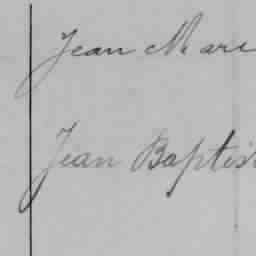 Jean Mari
Jean Baptis